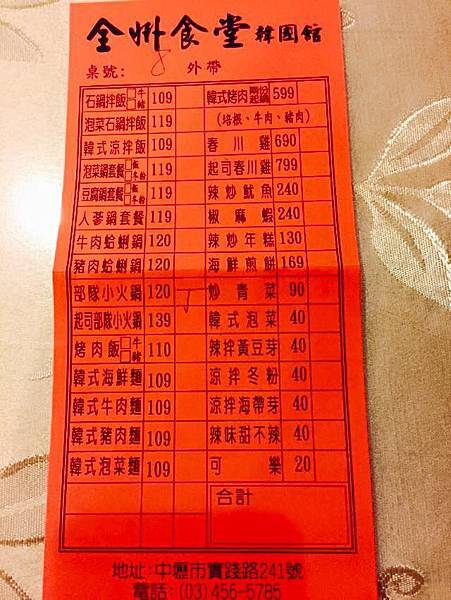 全州食堂 韓國館
桌號: 8 外帶
石鍋拌飯 □牛 □豬 109 韓式烤肉 兩份起鍋 599
泡菜石鍋拌飯 119 (培根、牛肉、豬肉)
韓式涼拌飯 109 春川雞 690
泡菜鍋套餐 □飯 □冬粉 119 起司春川雞 799
豆腐鍋套餐 □飯 □冬粉 119 辣炒魷魚 240
人蔘鍋套餐 119 椒麻蝦 240
牛肉蛤蜊鍋 120 辣炒年糕 130
豬肉蛤蜊鍋 120 海鮮煎餅 169
部隊小火鍋 120 炒青菜 90
起司部隊小火鍋 139 韓式泡菜 40
烤肉飯 □牛 □豬 110 辣拌黃豆芽 40
韓式海鮮麵 109 涼拌冬粉 40
韓式牛肉麵 109 涼拌海帶芽 40
韓式豬肉麵 109 辣味甜不辣 40
韓式泡菜麵 109 可樂 20
合計
地址:中壢市實踐路241號
電話:(03)456-5785